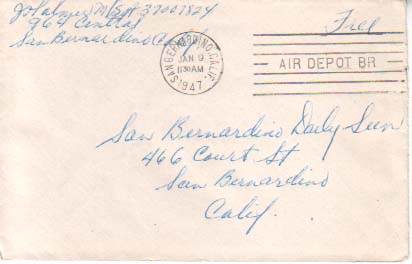 Jo Palmer M/Sgt 37007824
964 Central
San Bernardino Calif
Free
SAN BERNARDINO, CALIF.
JAN 9
1130 AM
1947
AIR DEPOT BR
San Bernardino Daily Sun
466 Court St
San Bernardino
Calif.